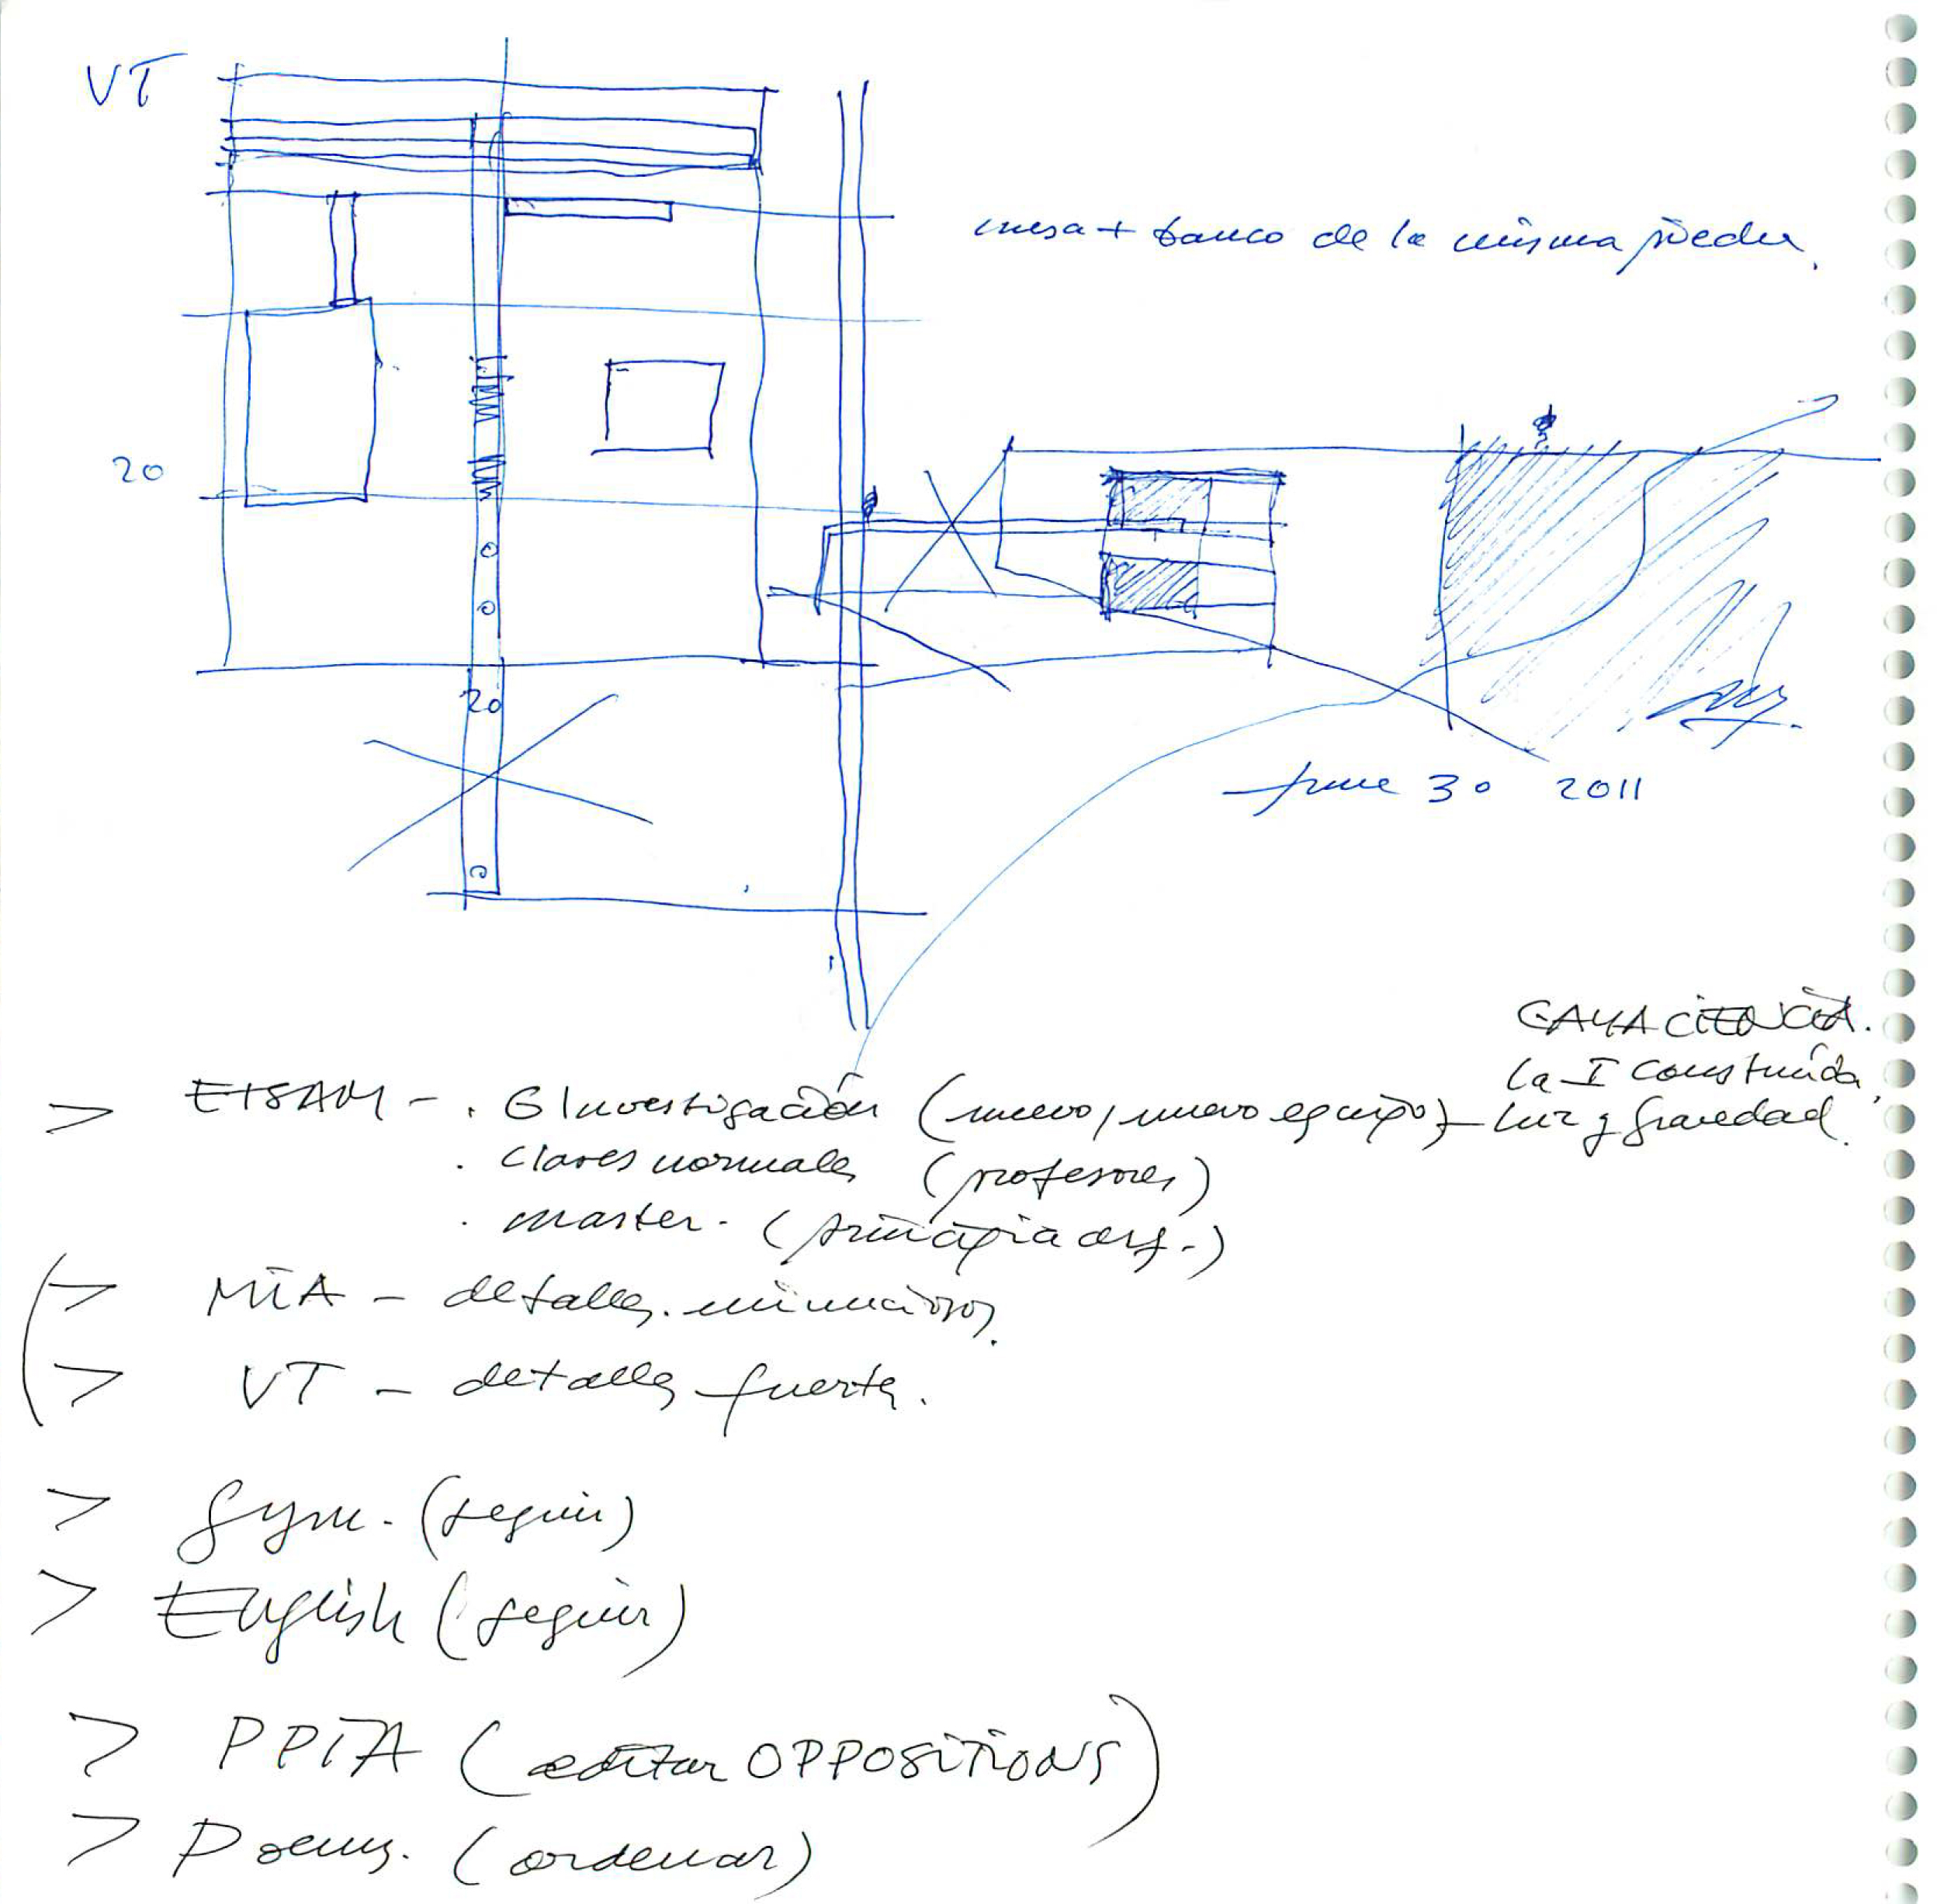 VT
mesa + banco de la misma piedra.
20
20
June 30 2011
GAYA CIENCIA.
la I construida,
> ETSAM - . G Investigación (nuevo, nuevo equipo) - luz y gravedad.
. clases normales (profesores)
. master. (principia arq.)
> MIA - detalles minuciosos.
> VT - detalles fuertes.
> Gym. (seguir)
> English (seguir)
> PPIA (editar OPPOSITIONS)
> Poems. (ordenar)